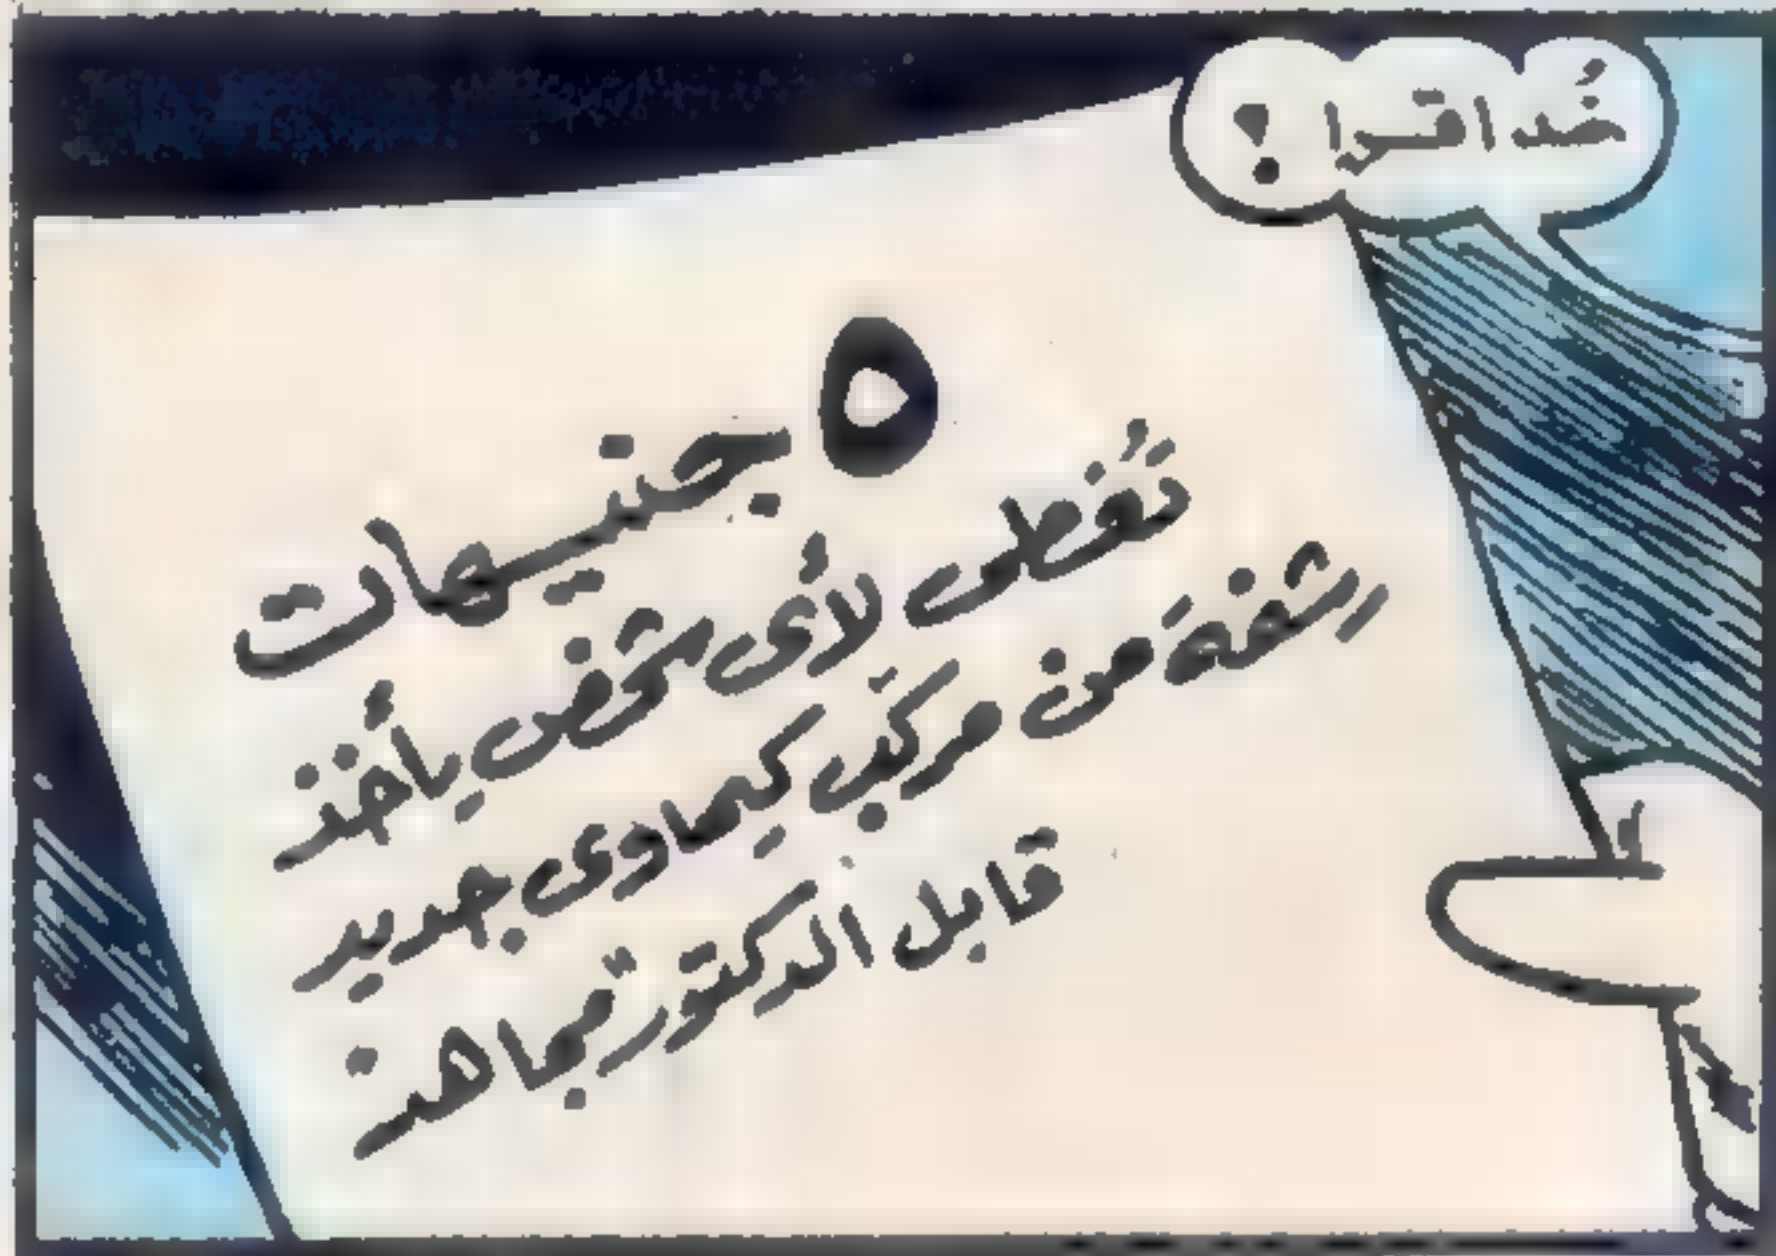 خُد اقرا !
٥ جنيهات
تُعطى لأى شخص يأخذ
رشفة من مركب كيماوى جديد
قابل الدكتور مجاهد